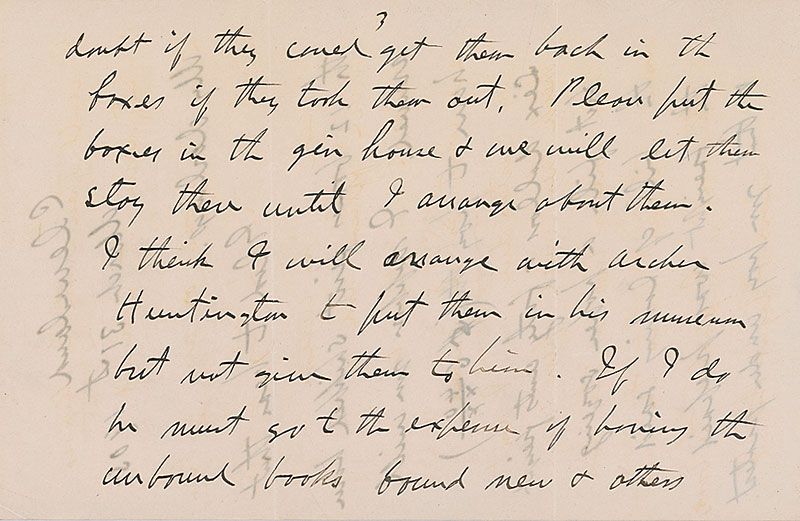 3
doubt if they could get them back in th
boxes if they took them out. Please put the
boxes in th gin house & we will let them
stay there until I arrange about them.
I think I will arrange with Archer
Huntington to put them in his museum
but not give them to him. If I do
he must go to the expense of having the
unbound books bound new & others